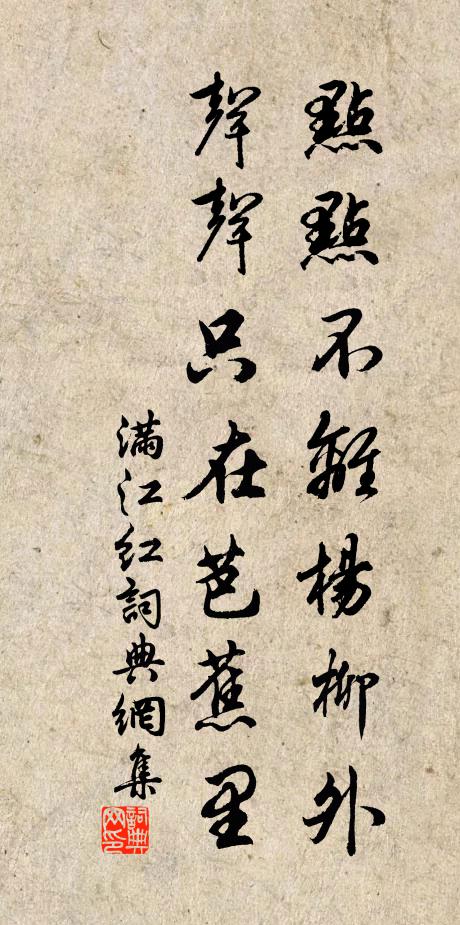 點點不離楊柳外
聲聲只在芭蕉里
滿江紅詞典網集
詞典网印